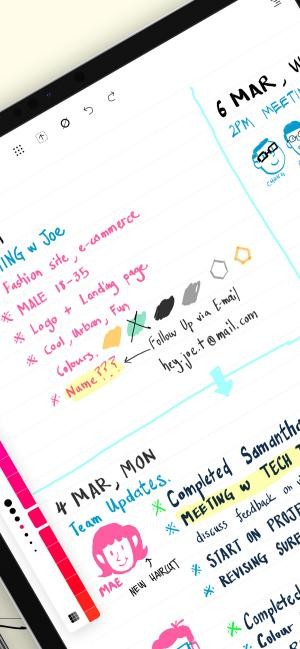 6 MAR, W
2PM MEETIN
CHANG
ING w Joe
Fashion site, e-commerce
* MALE 18-35
* Logo + Landing page
* Cool, Urban, Fun
Colours.
* Name???
Follow Up via E-mail
hey.joe.t@mail.com
4 MAR, MON
Team Updates.
MAE
NEW HAIRCUT
* Completed Samantha
* MEETING w TECH T
discuss feedback on
* START ON PROJE
* REVISING SURE
* Completed
* Colour